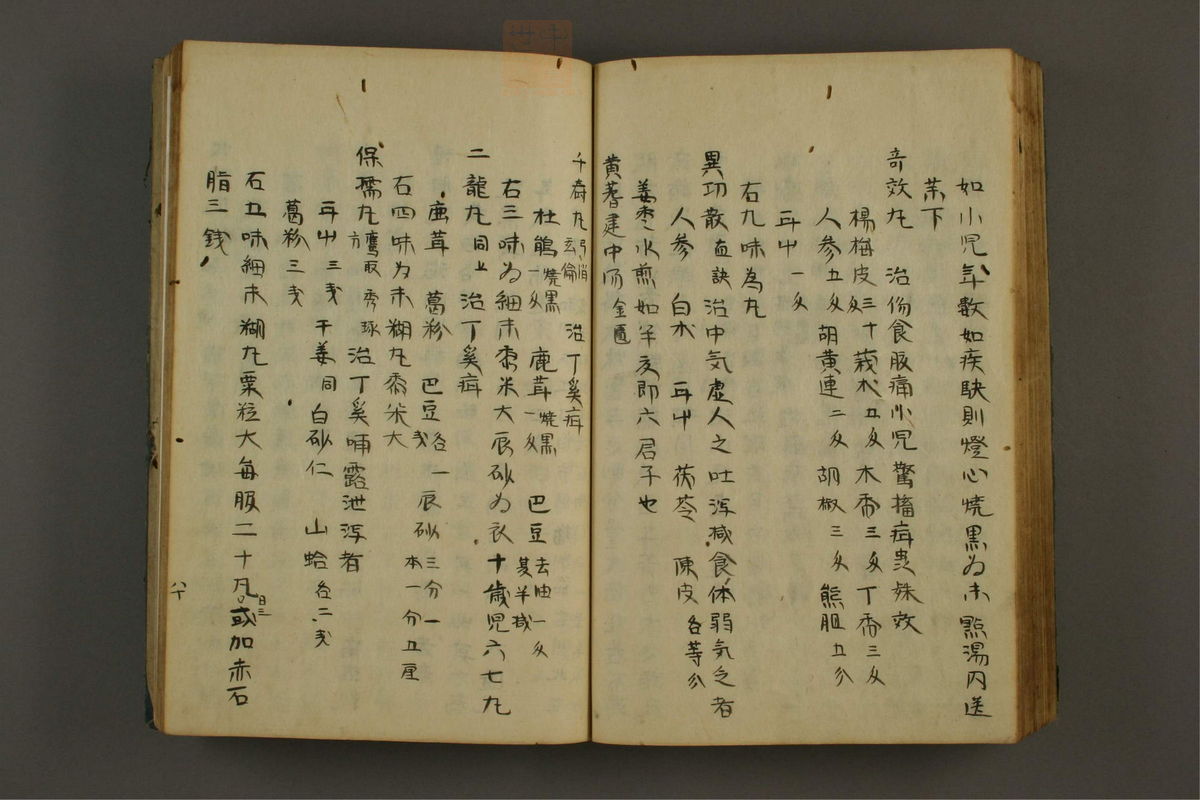 如小児年数如疾缺則燈心焼黒為末點湯内送
下
奇效丸 治傷食腹痛小児驚搐疳虫殊效
楊梅皮三十 莪朮五匁 木香三匁 丁香三匁
人参五匁 胡黄連二匁 胡椒三匁 熊胆五分
耳中一匁
右九味為丸
異功散 直訣 治中気虚人之吐瀉減食体弱気乏者
人参 白朮 耳中 茯苓 陳皮 各等分
姜棗水煎如半夏即六君子也
黄蓍建中湯 金匱
千 丸 治丁奚疳
杜鵑 焼黒一匁 鹿茸 焼黒一匁 巴豆 去油一匁
右三味為細末黍米大辰砂為衣十歳児六七丸
二龍丸 同上 治丁奚疳
鹿茸 葛粉 巴豆 各一戋 辰砂 三分一本一分五厘
右四味為末糊丸黍米大
保孺丸 治丁奚哺露泄瀉者
耳中三戋 干姜同 白砂仁 山蛤各二戋
葛粉三戋
右五味細末糊丸粟粒大毎服二十丸日三或加赤石
脂三銭